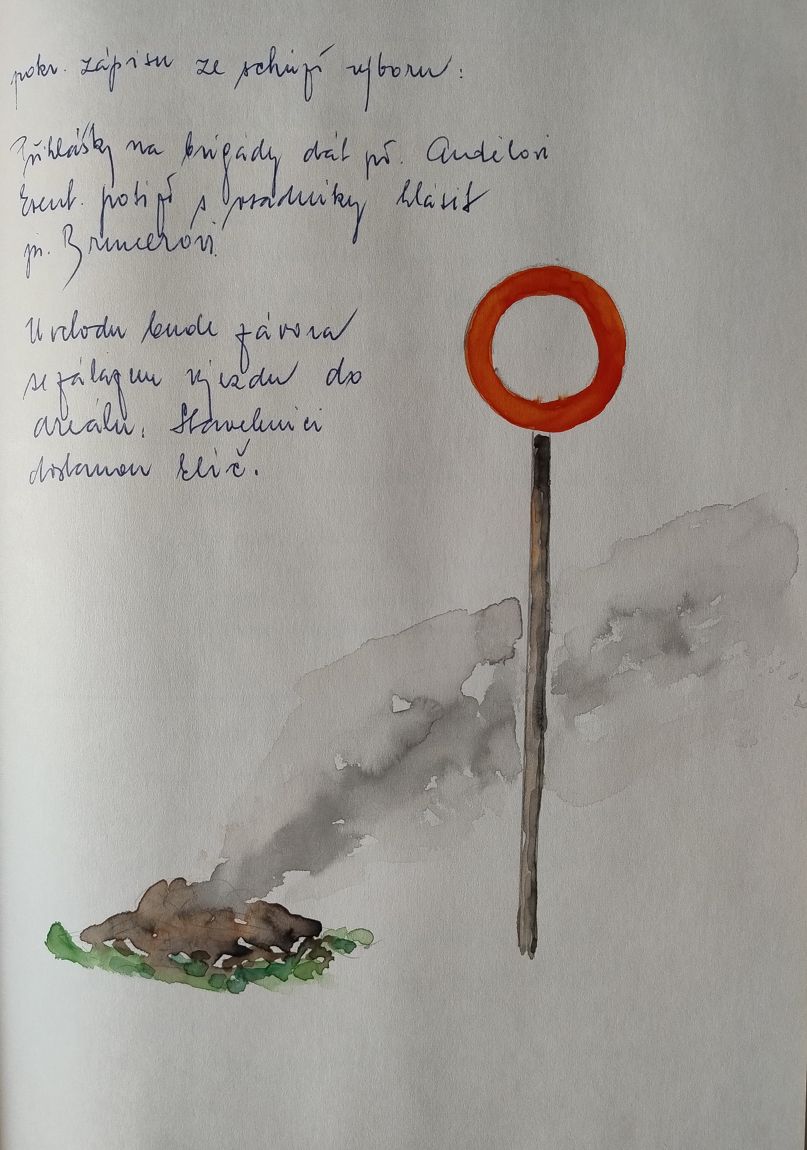 pokr. zápisu ze schůzí výboru:
Přihlášky na brigády dát př. Andělovi
Event. potíže s osadníky hlásit
př. Brunerovi.
U vchodu bude závora
se zákazem vjezdu do
areálu. Stavebníci
dostanou klíč.